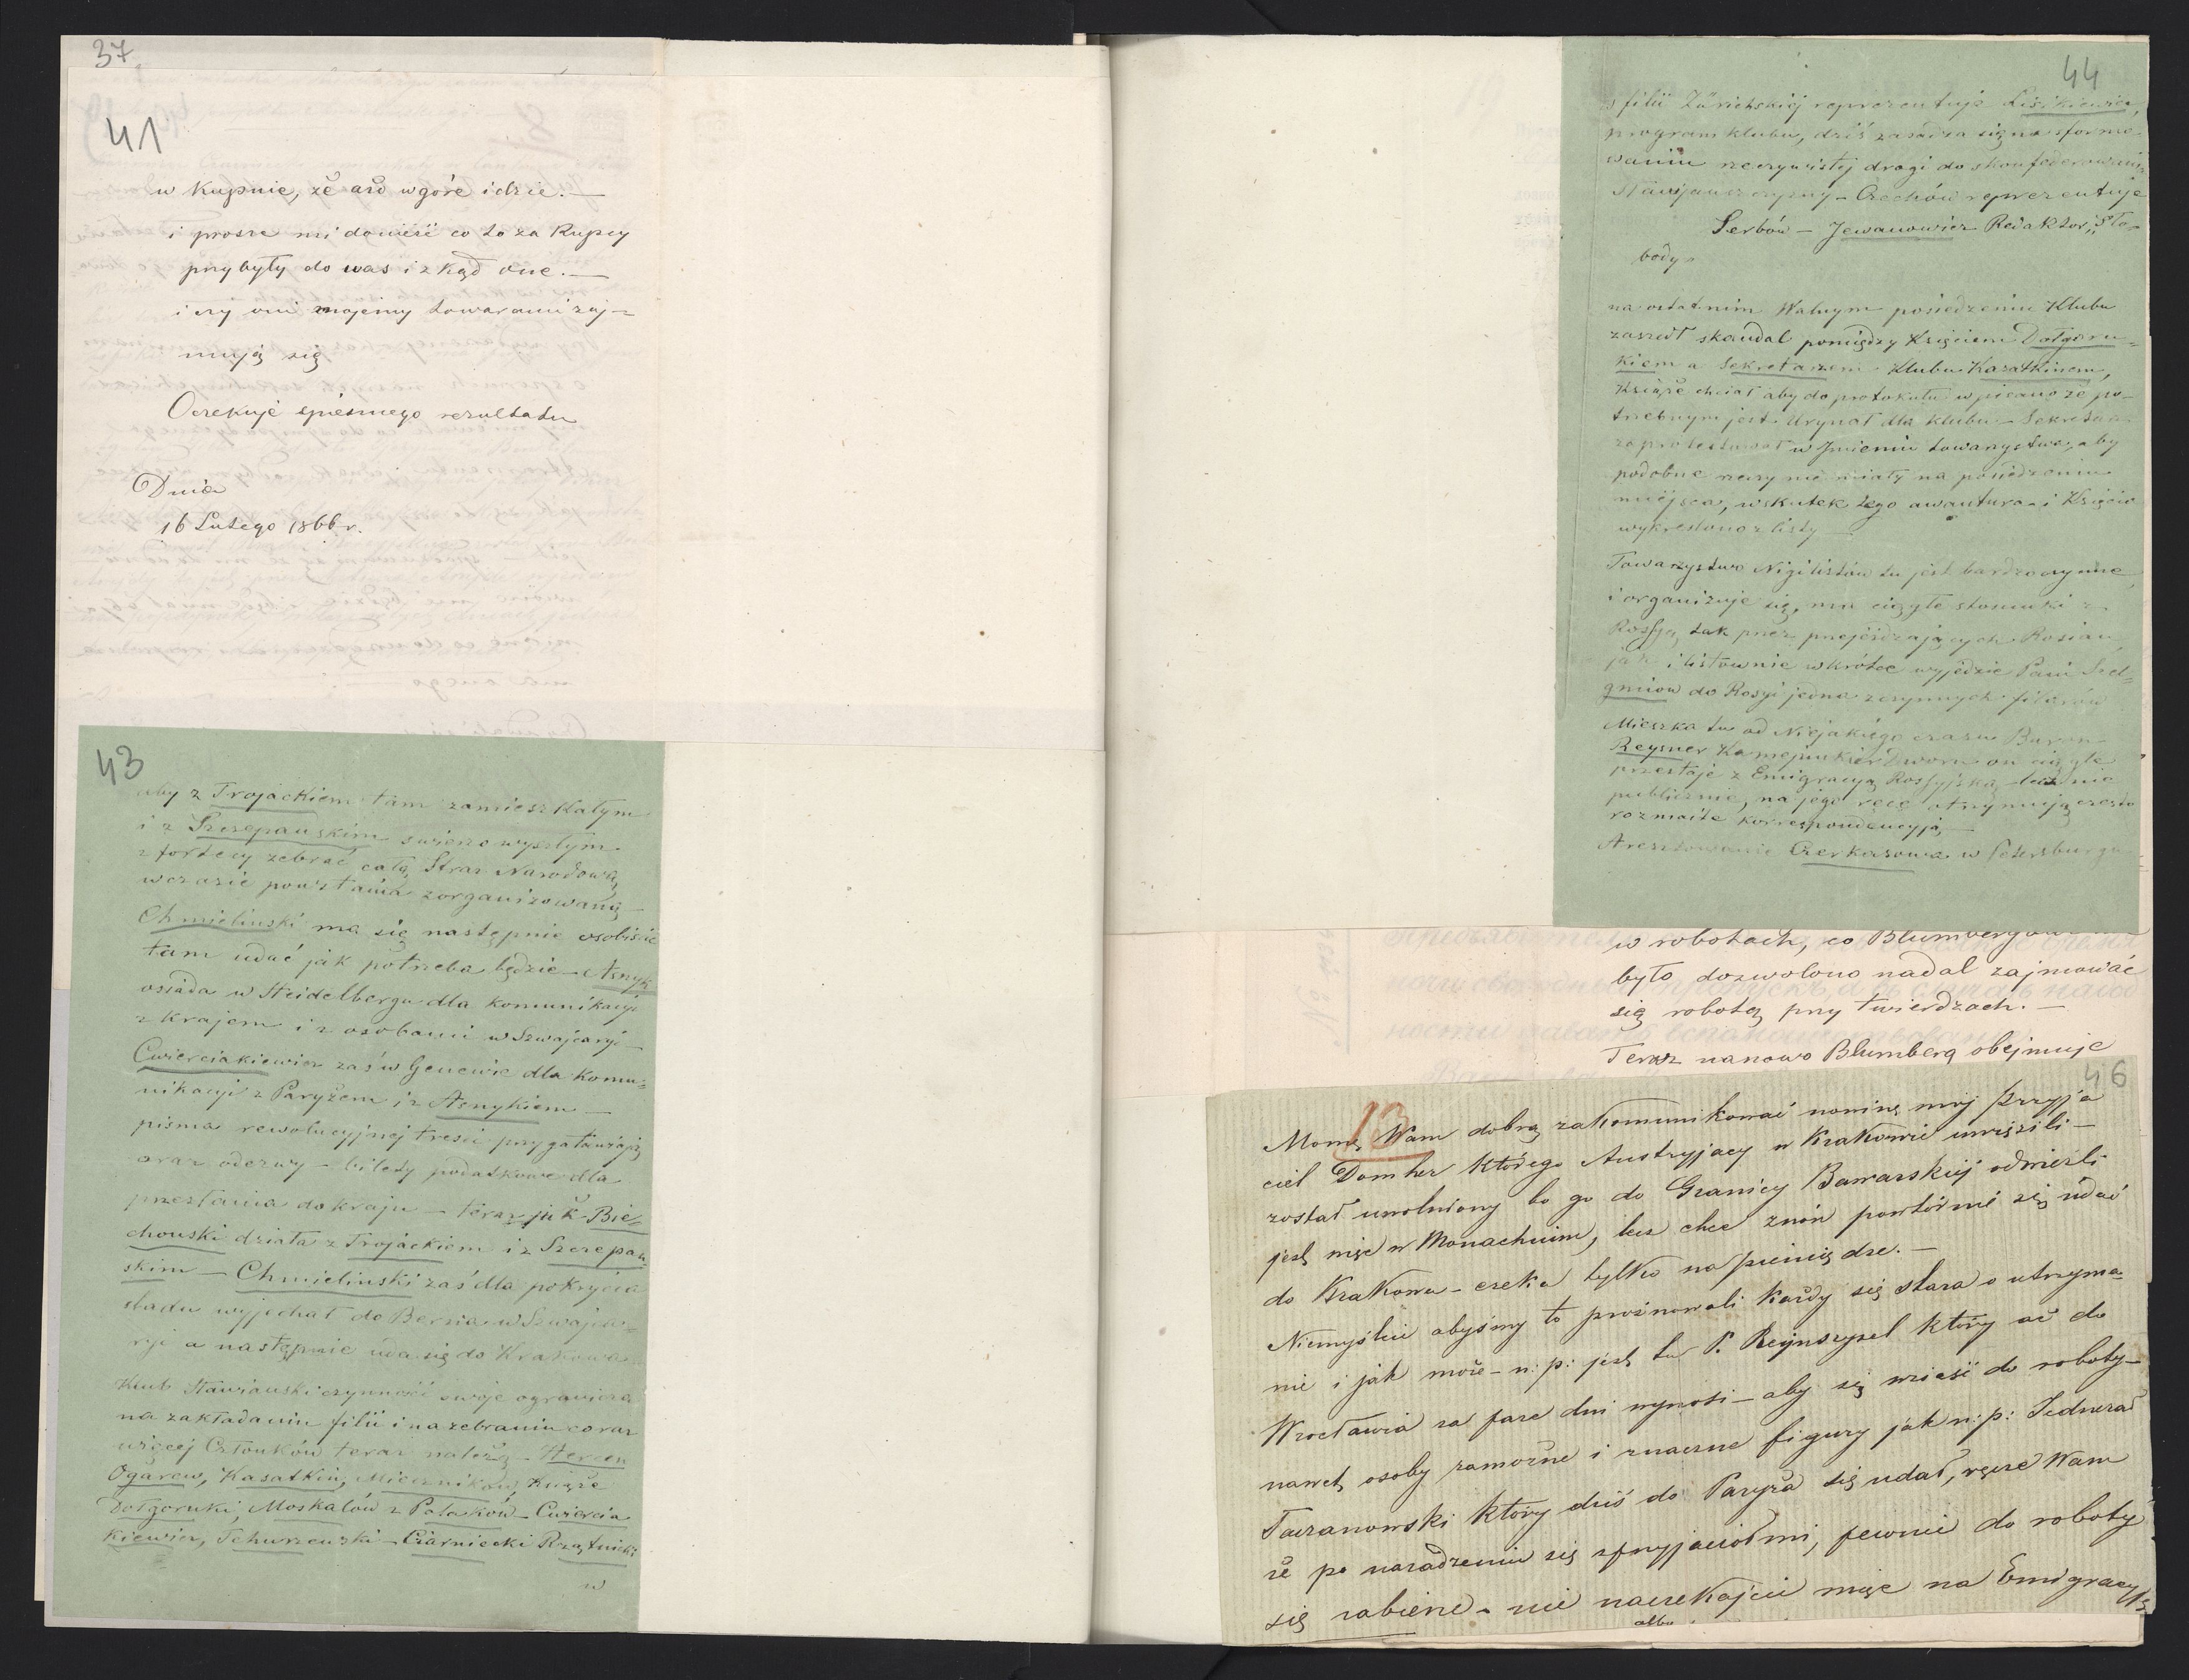 37
41
w kupnie, że aż w górę idzie. —
i proszę mi donieść co to za kupcy
przybyły do was i z kąd one. —
i czy oni mojemy towarami zaj=
mują się
Oczekuję spiesznego rezultatu
Dnia
16 Lutego 1866 r.
43
aby z Trojackiem tam zamieszkałym
i z Szczepańskim swieżo wyszłym
z fortecy zebrać całą Straż Narodową
w czasie powstania zorganizowaną —
Chmieliński ma się następnie osobiście
tam udać jak potrzeba będzie — Asnyk
osiada w Heidelbergu dla komunikacyi
z krajem i z osobami w Szwajcaryi —
Cwierciakiewicz zaś w Genewie dla komu=
nikacyi z Paryżem i z Asnykiem —
pisma rewolucyjnej treści przygatawiają
oraz odezwy — bilety podatkowe dla
przesłania do kraju — teraz już Bie=
chouski działa z Trojackiem i z Szczepań=
skim — Chmieliński zaś dla pokrycia
sladu wyjechał do Berna w Szwajca=
ryi a następnie uda się do Krakowa
Klub Sławianski czynność swoje ogranicza
na zakładaniu filii i na zebraniu coraz
więcej Członków teraz należą — Hercen
Ogarew, Kasatkin, Miecznikow, Książe
Dołgoruki, Moskalów z Polaków — Cwiercia
kiewicz, Tchurzewski — Czarniecki Rząśnicki
w
44
z filii Zürichskiej reprezentuje Liskiewicz,
program klubu, dziś zasadza się na sformo=
waniu rzeczywistej drogi do skonfederowania
Sławjanszczyzny — Czechów reprezentuje
Serbów — Jewanowicz Redaktor „Sło=
body„
na ostatnim Walnym posiedzeniu Klubu
zaszedł skandal pomiędzy Księciem Dołgoru=
kiem a Sekretarzem Klubu Kasatkinem,
Książe chciał aby do protokułu wpisano że po=
trzebnym jest Urynał dla klubu — Sekretarz
zaprotestował w Jmieniu towarzystwa, aby
podobne rzeczy nie miały na posiedzeniu
miejsca, wskutek tego awantura — i Księcia
wykreslono z listy —
Towarzystwo Nigilistów tu jest bardzo czynne
i organizuje się, ma ciągłe stosunki z
Rosyją, tak przez przejeżdzających Rosian
jak i listownie wkrótce wyjedzie Pani
do Rosyi jedna z czynnych filarów
Mieszka tu od Niejakiego czasu Baron
Reysner Kamerjunkier Dworu on ciągle
przestaje z Emigracyą Rossyjską — lecz nie
publicznie, na jego ręce otrzymują często
rozmaite korrespondencyją —
Aresztowanie Czerkasowa w Petersburgu
w robotach, co Blumbergowi
było dozwolono nadal zajmować
się robotą przy twierdzach. —
Teraz nanowo Blumberg obejmuje
46
13
Mogę Wam dobrą zakomunikować nowinę mój Przyja
ciel Domher którego Austryjacy w Krakowie uwięzili —
został uwolniony bo go do Granicy Bawarskiej odwieźli
jest więc w Monachium, lecz chce znów powtórnie się udać
do Krakowa — czeka tylko na pieniądze. —
Niemyślcie abyśmy tó proźnowali każdy się stara o utrzyma=
nie i jak może — n: p: jest tu P. Rejnszyzel który aż do
Wrocławia za parę dni wynosi — aby się wziąść do roboty —
nawet osoby zamożne i znaczne figury jak n: p: Jednerał
Taczanowski który dziś do Paryża się udał, ręczę Wam
że po naradzeniu się z przyjaciółmi, pewnie do roboty
się zabierze. — nie narzekajcie więc na Emigracyją
albo